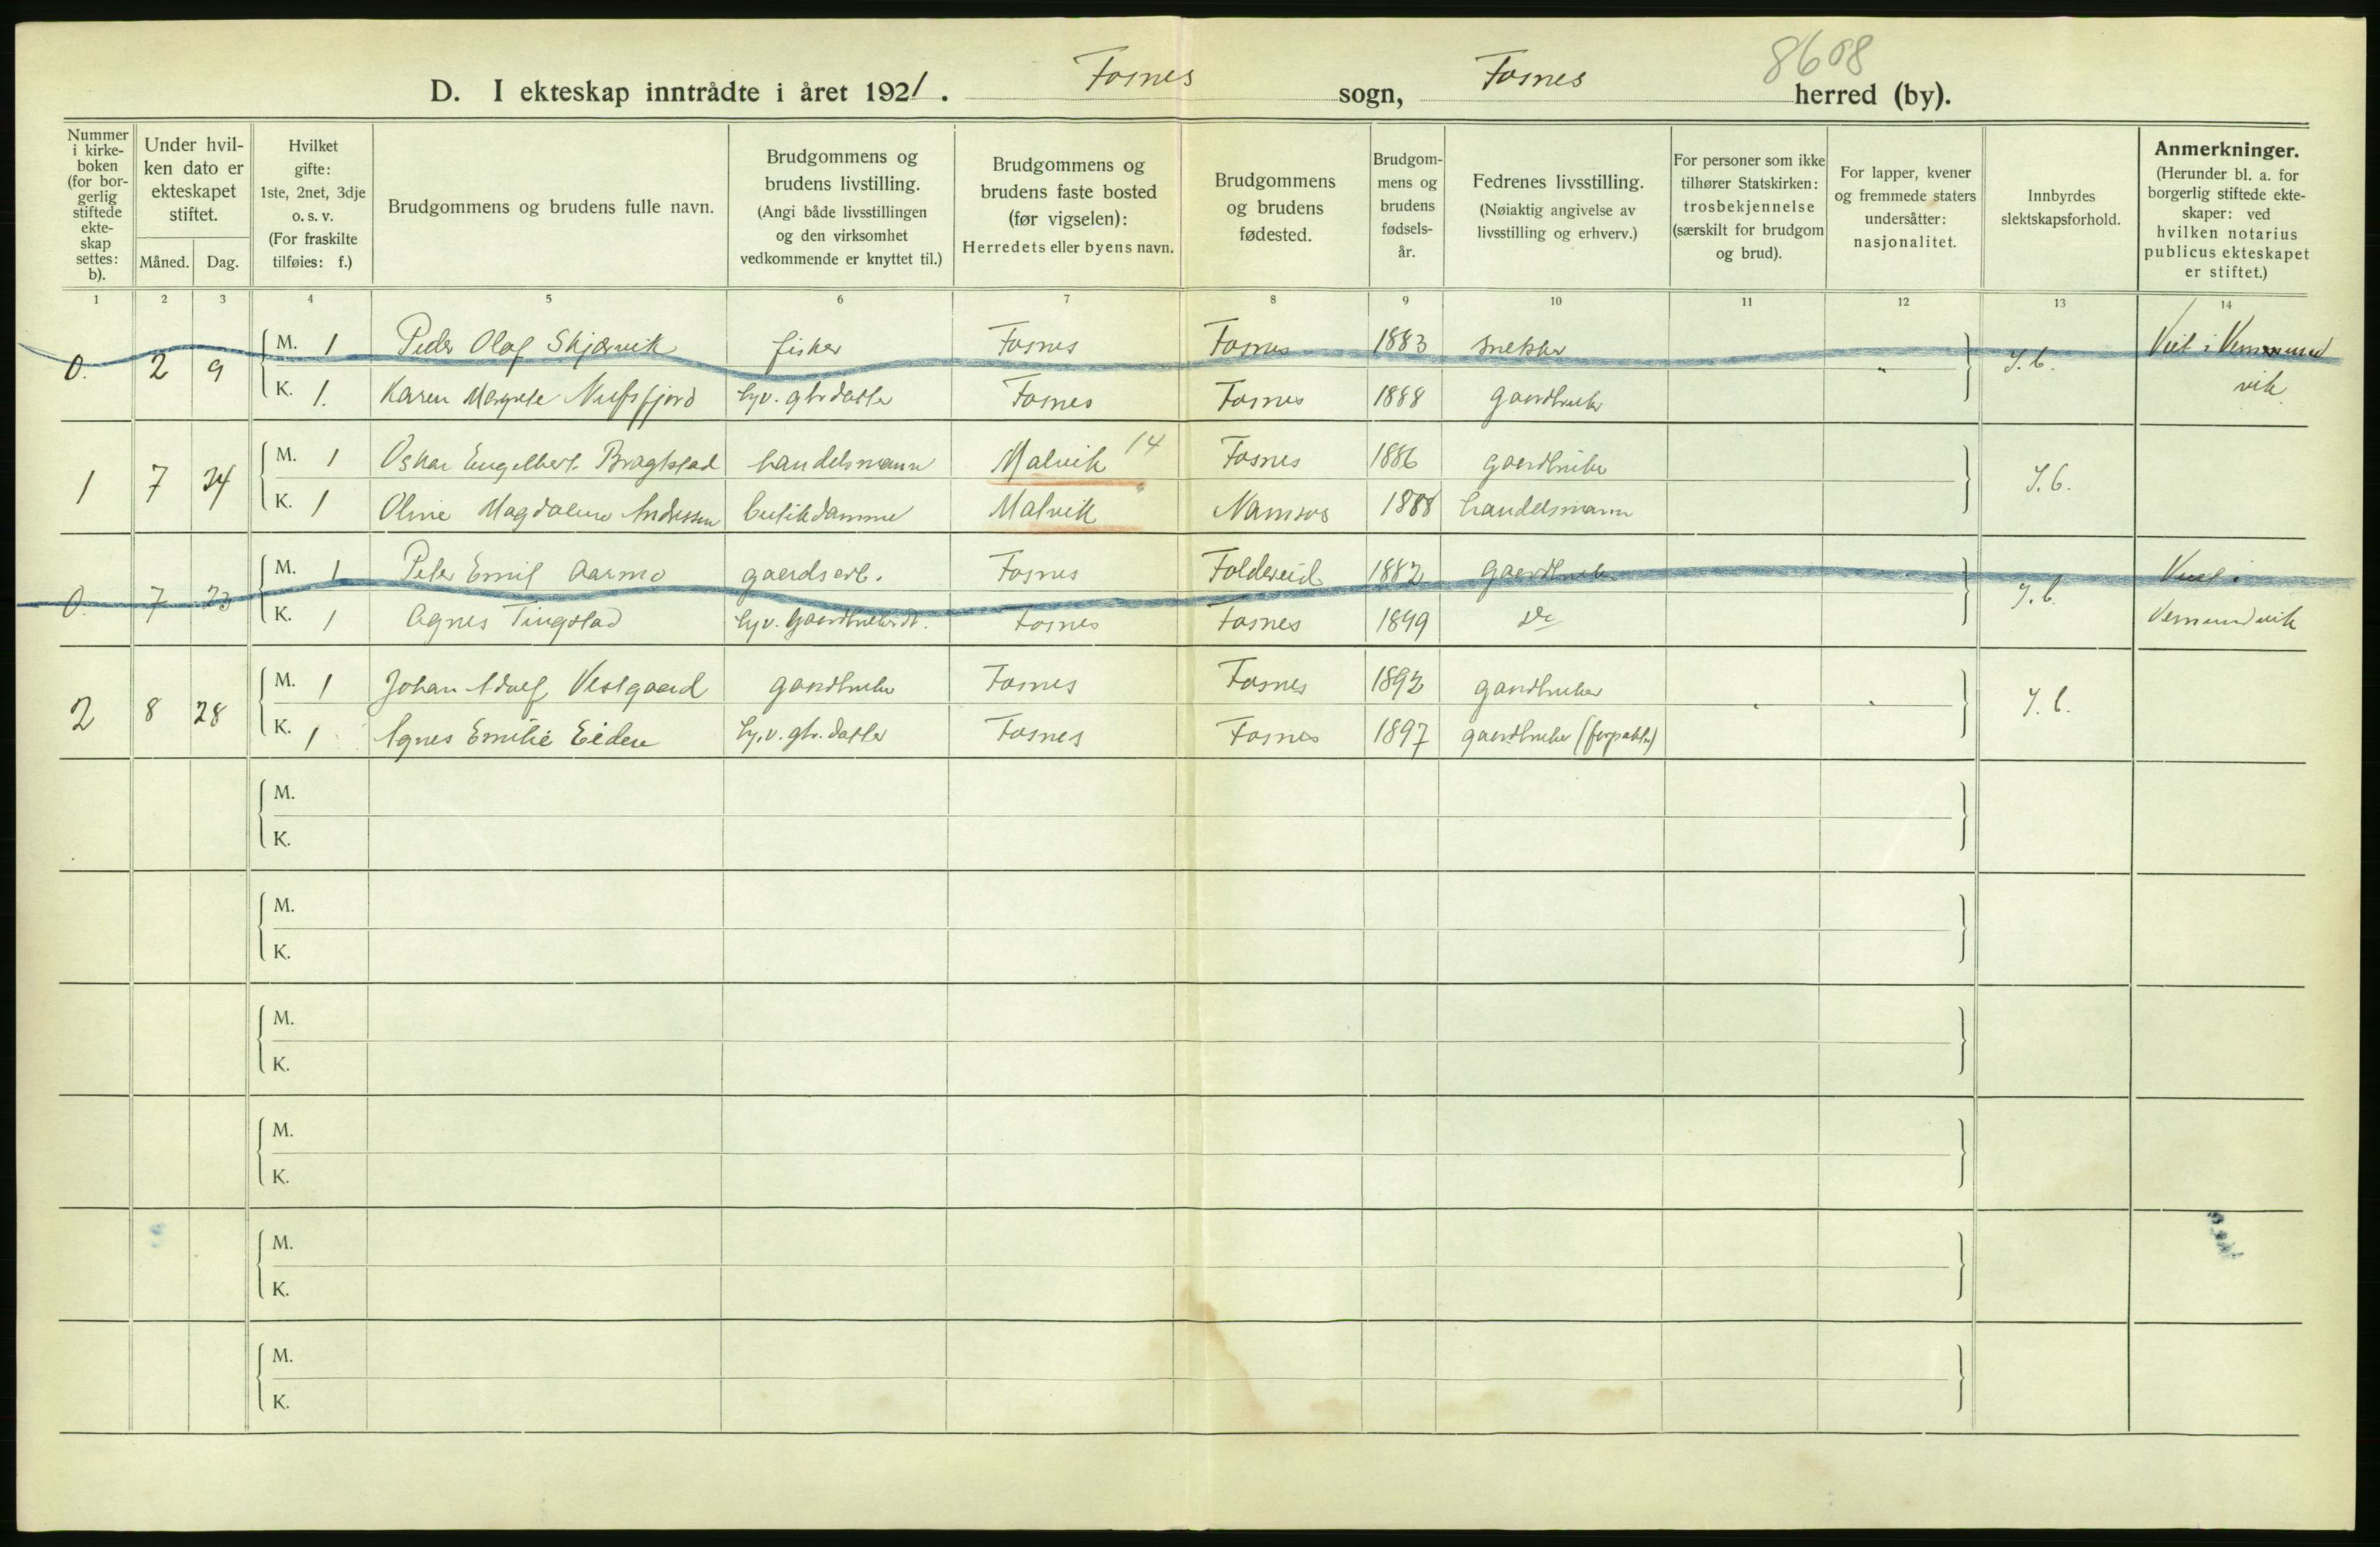 8608
D. I ekteskap inntrådte i året 1921. Fosnes sogn, Fosnes herred (by).
Nummer i kirke-boken (for bor-gerlig stiftede ekte-skap settes: b).
Under hvil-ken dato er ekteskapet stiftet.
Måned. Dag.
Hvilket gifte: 1ste, 2net, 3dje o. s. v. (For fraskilte tilføies: f.)
Brudgommens og brudens fulle navn.
Brudgommens og brudens livstilling. (Angi både livsstillingen og den virksomhet vedkommende er knyttet til.)
Brudgommens og brudens faste bosted (før vigselen): Herredets eller byens navn.
Brudgommens og brudens fødested.
Brudgom-mens og brudens fødsels-år.
Fedrenes livsstilling. (Nøiaktig angivelse av livsstilling og erhverv.)
For personer som ikke tilhører Statskirken: trosbekjennelse (særskilt for brudgom og brud).
For lapper, kvener og fremmede staters undersåtter: nasjonalitet.
Innbyrdes slektskapsforhold.
Anmerkninger. (Herunder bl. a. for borgerlig stiftede ekte-skaper: ved hvilken notarius publicus ekteskapet er stiftet.)
1 2 3 4 5 6 7 8 9 10 11 12 13 14
0. 2 9 M. 1 Peder Olaf Skjærvik fisker Fosnes Fosnes 1883 snekker " I. b. Viet i Vemmund
K. 1. Karen Margrete Nufsfjord hjv. gbr datter Fosnes Fosnes 1888 gaardbruker vik
1 7 24 M. 1 Oskar Engelbert Bragstad handelsmann Malvik 14 Fosnes 1886 gaardbruker I. b.
K. 1 Oline Magdalene Andressen butikdamme Malvik " Namsos 1888 handelsmann
0. 7 23 M. 1 Peter Emil Aarmo gaardsarb. Fosnes Foldereid 1882 Gaardbruker I. b. Viet i
K. 1 Agnes Tingstad hjv. Gaardbrukerdt. Fosnes Fosnes 1899 Do Vemundvik
2 8 28 M. 1 Johan Adolf Vestgaard gaardbruker Fosnes Fosnes 1892 gaardbruker I. b.
K. 1 Agnes Emilie Eiden hj.v. gbr. datter Fosnes Fosnes 1897 gaardbruker (forpakter)
M.
K.
M.
K.
M.
K.
M.
K.
M.
K.
M.
K.